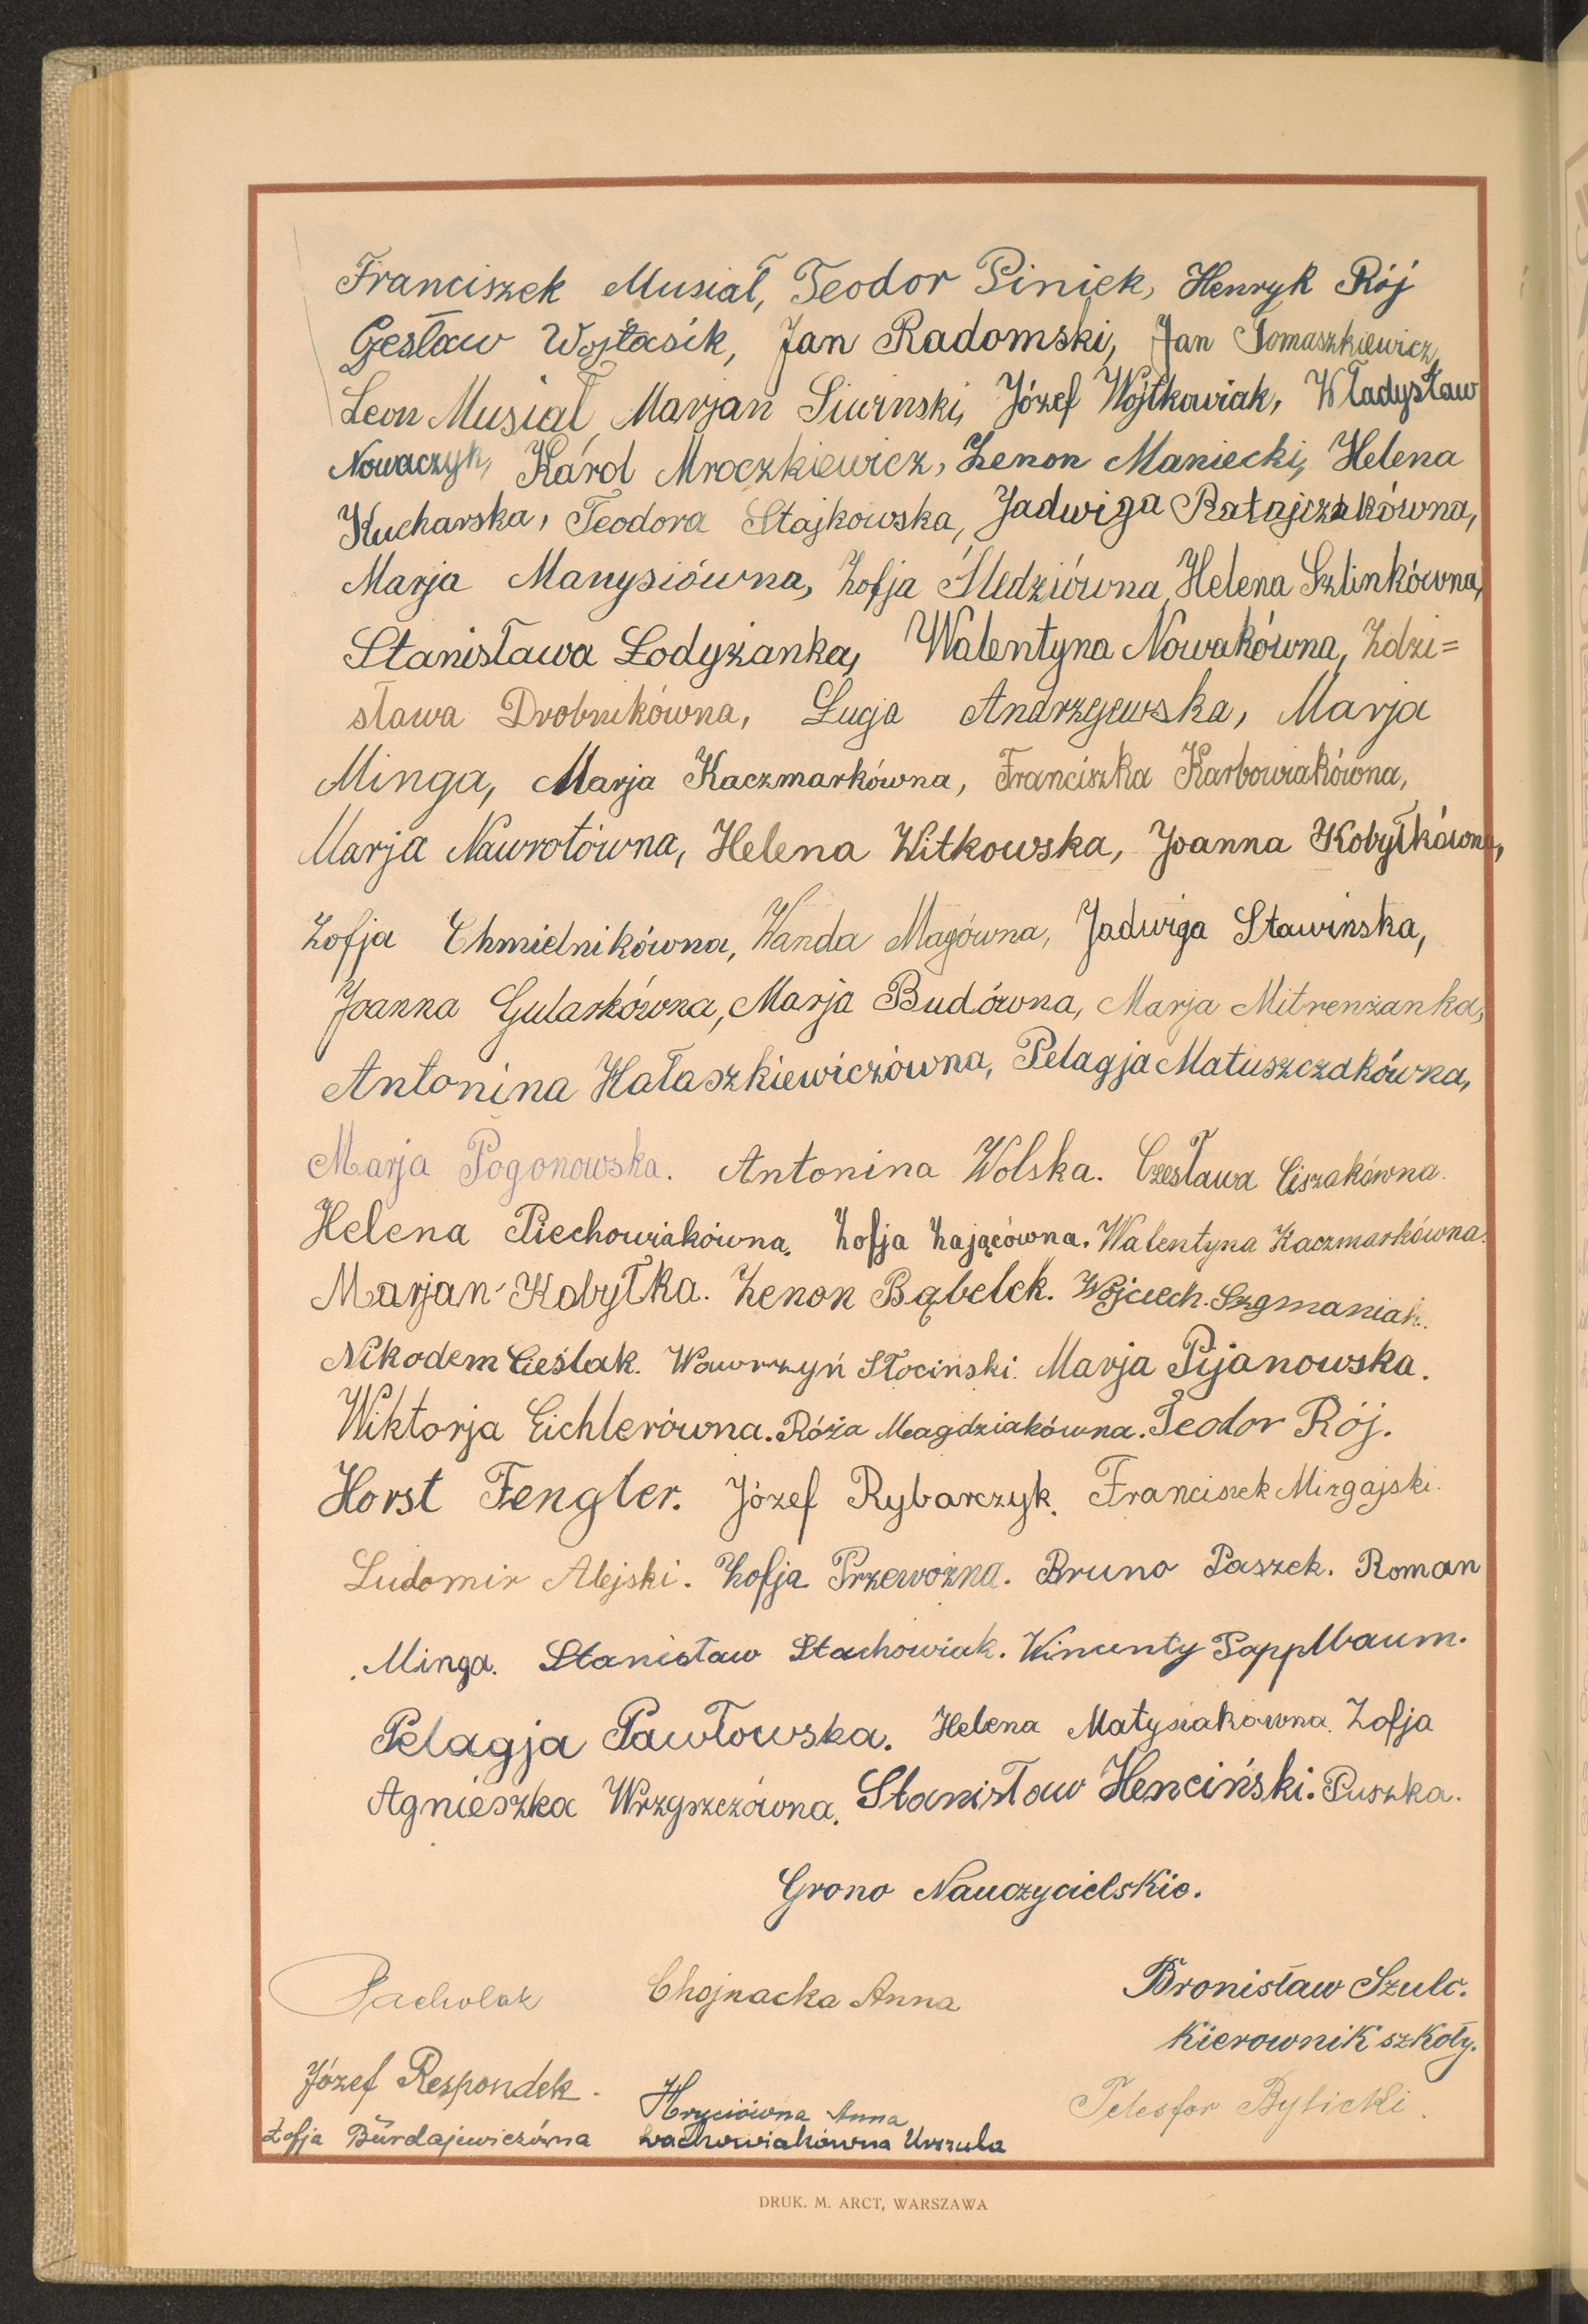 Franciszek Musiał, Teodor Piniek, Henryk Rój
Gesław Wojtasik, Jan Radomski, Jan Tomaszkiewicz,
Leon Musiał, Marjan Siwinski, Józef Wojtkowiak, Władysław
Nowaczyk, Karol Mroczkiewicz, Zenon Maniecki, Helena
Kucharska, Teodora Stajkowska, Jadwiga Ratajczakówna,
Marja Manysiówna, Zofja Śledziówna, Helena Szlinkówna,
Stanisława Łodyżanka, Walentyna Nowakówna, Zdzi=
sława Drobnikówna, Łucja Andrzejewska, Marja
Minga, Marja Kaczmarkówna, Franciszka Karbowiakówna,
Marja Nawrotówna, Helena Witkowska, Joanna Kobyłkówna,
Zofja Chmielnikówna, Wanda Magówna, Jadwiga Stawinska,
Joanna Gularkówna, Marja Budówna, Marja Mitrenżanka,
Antonina Hałaszkiewiczówna, Pelagja Matuszczakówna,
Marja Pogonowska. Antonina Wolska. Czesława Ciszakówna.
Helena Piechowiakówna. Zofja Zającówna. Walentyna Kaczmarkówna.
Marjan Kobyłka. Zenon Bąbelek. Wojciech Szymaniak.
Nikodem Cieślak. Wawrzyń Słociński. Marja Pijanowska.
Wiktorja Eichlerówna. Róża Magdziakówna. Teodor Rój.
Horst Fengler. Józef Rybarczyk. Franciszek Mizgajski.
Ludomir Alejski. Zofja Przewoźna. Bruno Paszek. Roman
Minga. Stanisław Stachowiak. Wincenty Papplbaum.
Pelagja Pawłowska. Helena Matysiakówna. Zofja
Agnieszka Wrzyszczówna. Stanisław Henciński. Puszka.
Grono Nauczycielskie.
Pacholak Chojnacka Anna Bronisław Szulc.
Kierownik szkoły.
Józef Respondek. Hryciówna Anna Telesfor Bylicki.
Zofja Burdajewiczówna Wachowiakówna Urszula
DRUK. M. ARCT, WARSZAWA